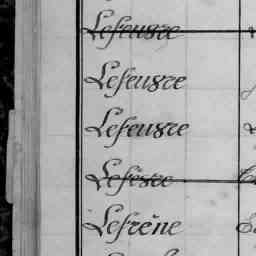 Lefeuvre
Lefeuvre
Lefeuvre
Lefèvre
Lefrêne